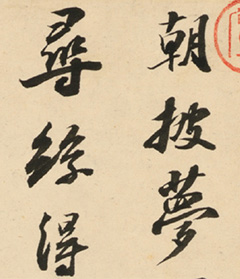 朝披夢
尋絲得